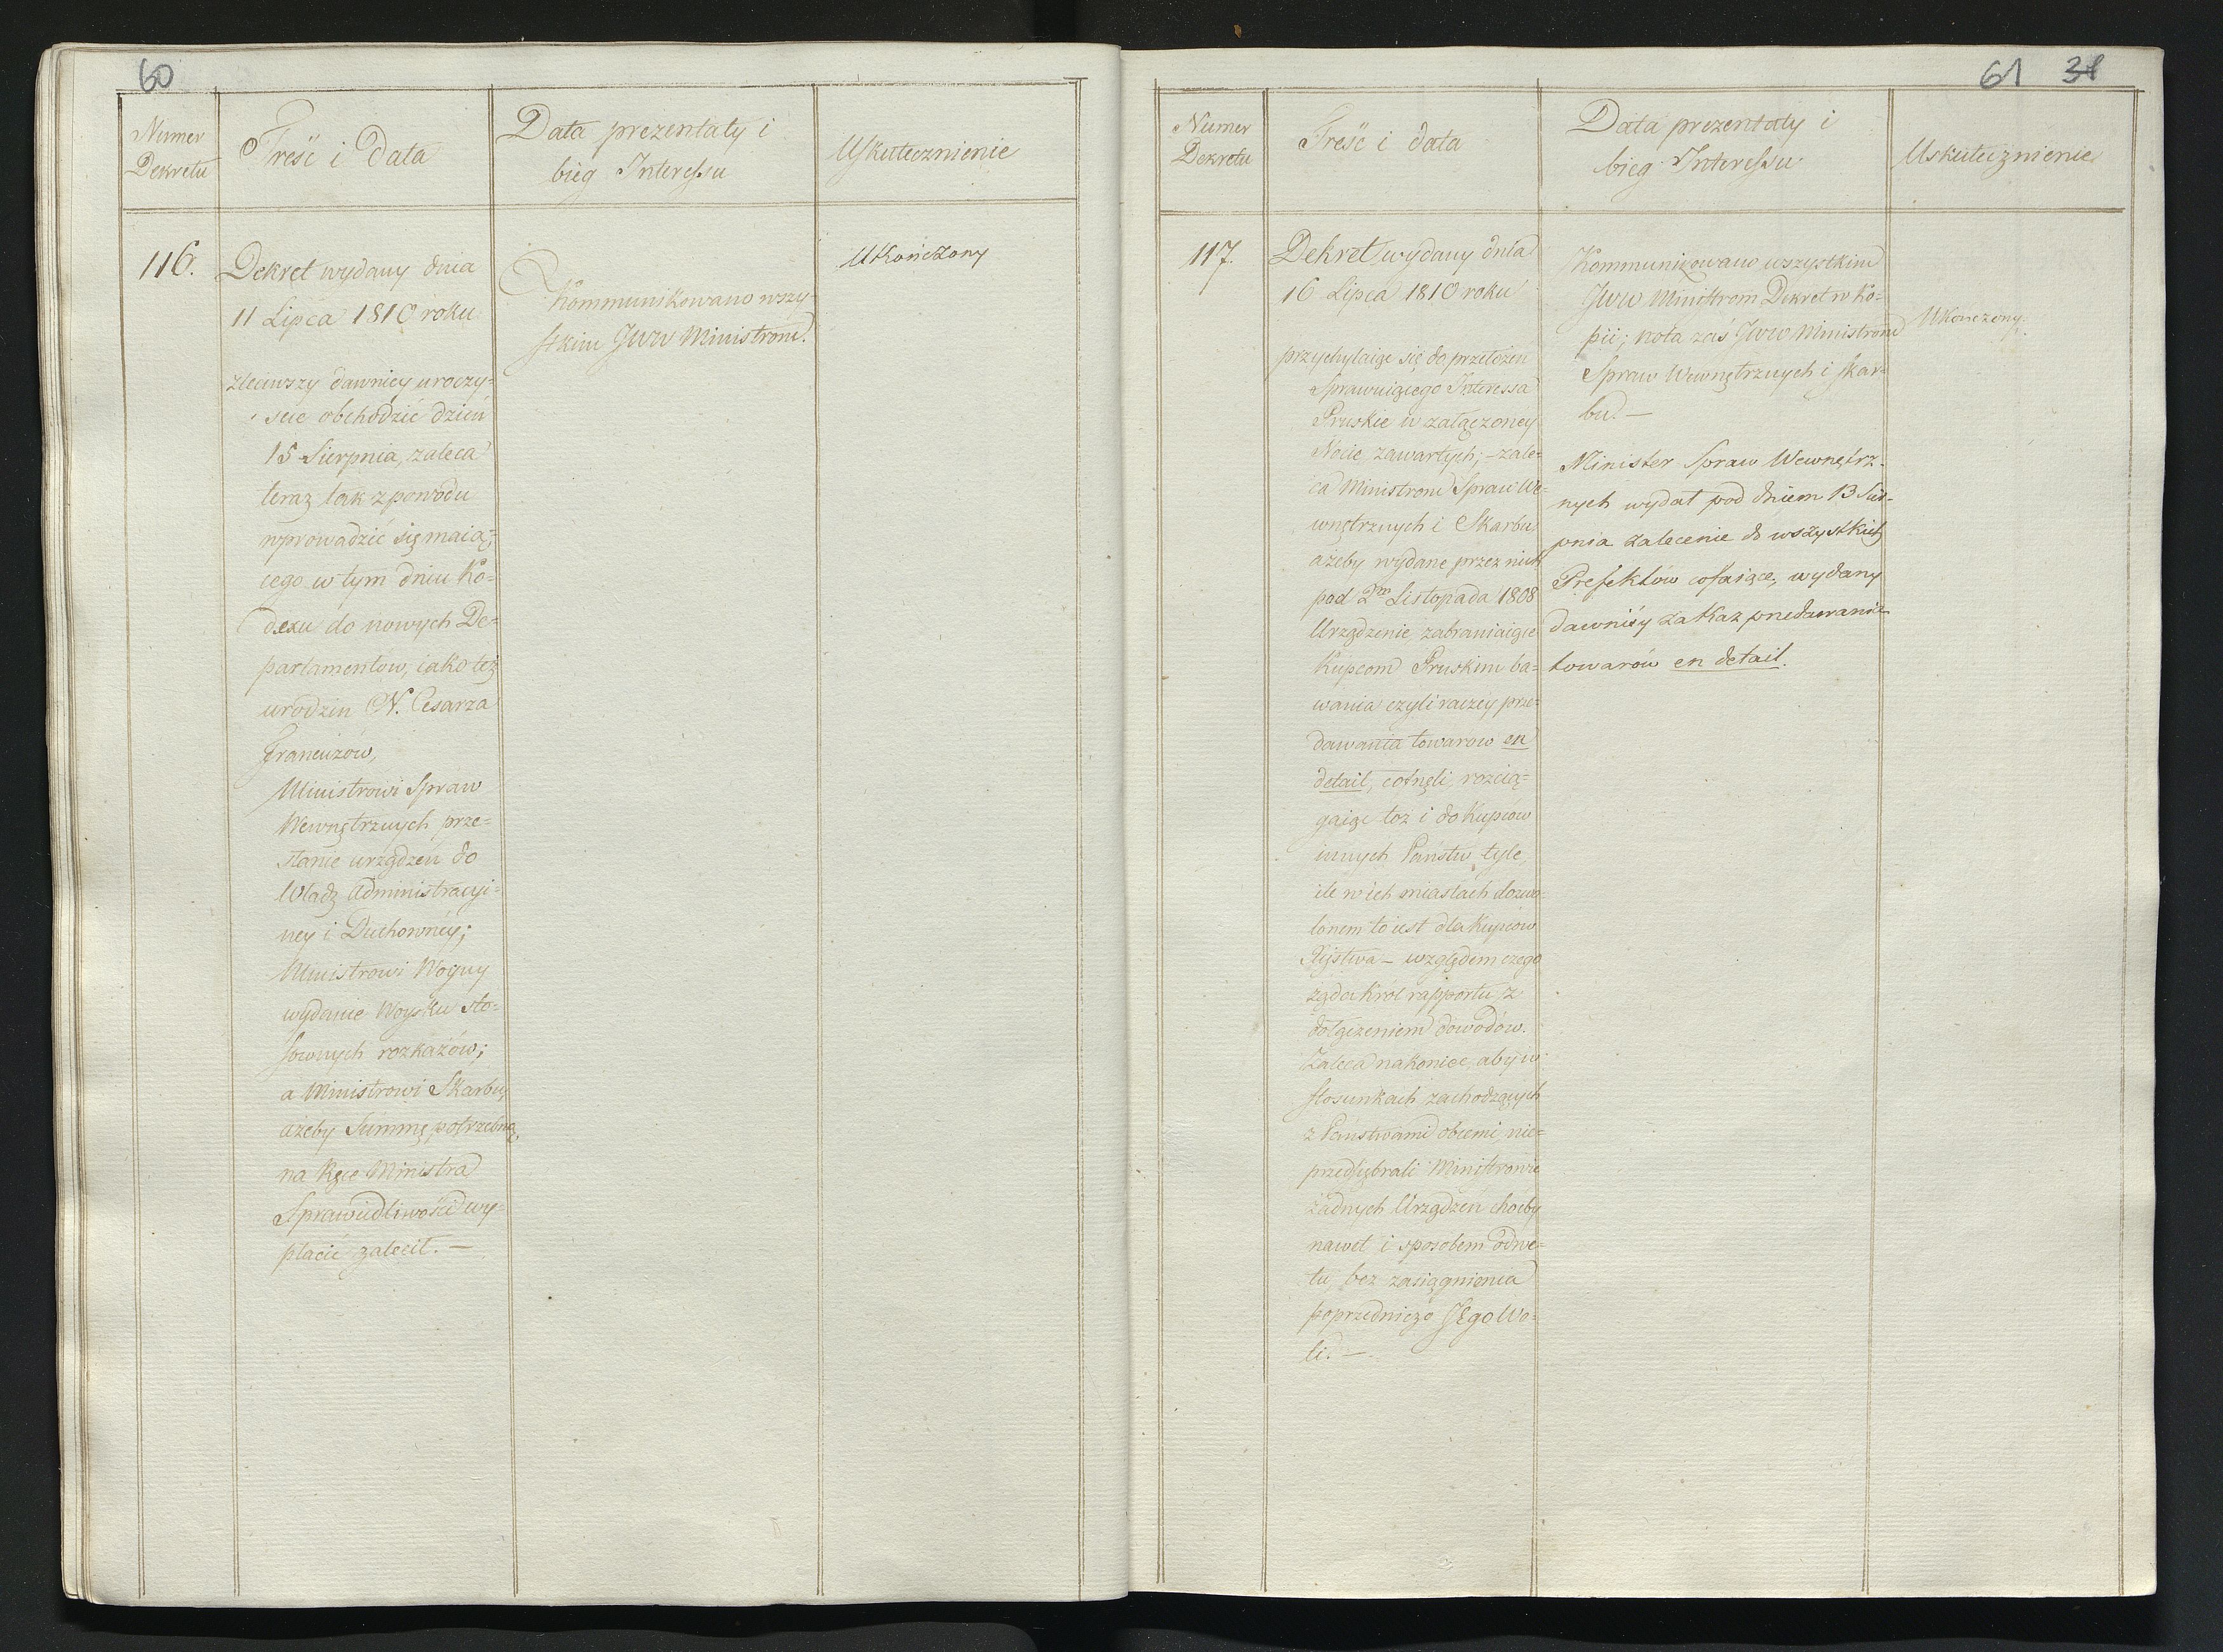 60
Numer Dekretu
Treść i Data
Data prezentaty i bieg Interessu
Uskutecznienie
116.
Dekret wydany dnia
11 Lipca 1810 roku
zleciwszy dawniey uroczy=
scie obchodzić dzień
15 Sierpnia, zaleca
teraz tak z powodu
wprowadzić się maią=
cego w tym dniu Ko=
dexu do nowych De=
partamentow, iako też
urodzin N. Cesarza
Francuzow,
Ministrowi Spraw
Wewnętrznych prze=
słanie urządzeń do
Władz Administracyi=
ney i Duchowney;
Ministrowi Woyny
wydanie Woysku sto=
sownych rozkazów;
a Ministrowi Skarbu,
ażeby Summę potrzebną,
na Ręce Ministra
Sprawiedliwości wy=
płacić zalecił. —
Kommunikowano wszy=
stkim JWW Ministrom.
Ukończony
61 31
Numer Dekretu
Treść i data
Data prezentaty i bieg Interessu
Uskutecznienie
117.
Dekret wydany dnia
16 Lipca 1810 roku
przychylaiąc się do przełożeń
Sprawuiącego Interessa
Pruskie w załączoney
Nocie zawartych; – zale=
ca Ministrom Spraw We=
wnętrznych i Skarbu
ażeby wydane przez nich
pod 2m Listopada 1808
Urządzenie zabraniaiące
Kupcom Pruskim ba=
wania czyli raczey prze=
dawania towarow en
detail, cofnęli, rozcią=
gaiąc toż i do Kupców
innych Państw tyle,
ile w ich miastach dozwo=
lonem to iest dla Kupców
Xięstwa – względem czego
żąda Król rapportu z
dołączeniem dowodów.
Zaleca nakoniec, aby w
stosunkach zachodzących
z Państwami obcemi, nie=
przedsiębrali Ministrowie
żadnych Urządzeń choćby
nawet i sposobem odwe=
tu bez zasiągnienia
poprzedniczo JEgo Wo=
li. —
Kommunikowano wszystkim
JWW Ministrom Dekret w Ko=
pii; nota zaś JWW Ministrom
Spraw Wewnętrznych i Skar=
bu. —
Minister Spraw Wewnętrz=
nych wydał pod dniem 13 Sier=
pnia zalecenie do wszystkich
Prefektów cofaiące, wydany
dawniey zakaz przedawania
towarów en detail.
Ukończony.